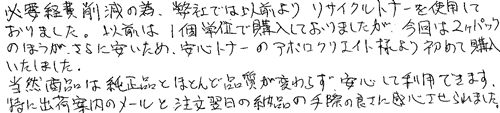 必要経費削減の為、弊社では以前より リサイクルトナーを使用して
おりました。以前は 1個単位で購入しておりましたが 今回は2ヶパック
のほうが、さらに安いため、安心トナーのアポロクリエイト様より初めて購入
いたしました。
当然商品は純正品とほとんど品質が変わらず 安心して利用できます。
特に出荷案内のメールと注文翌日の納品の手際の良さに感心させられました。